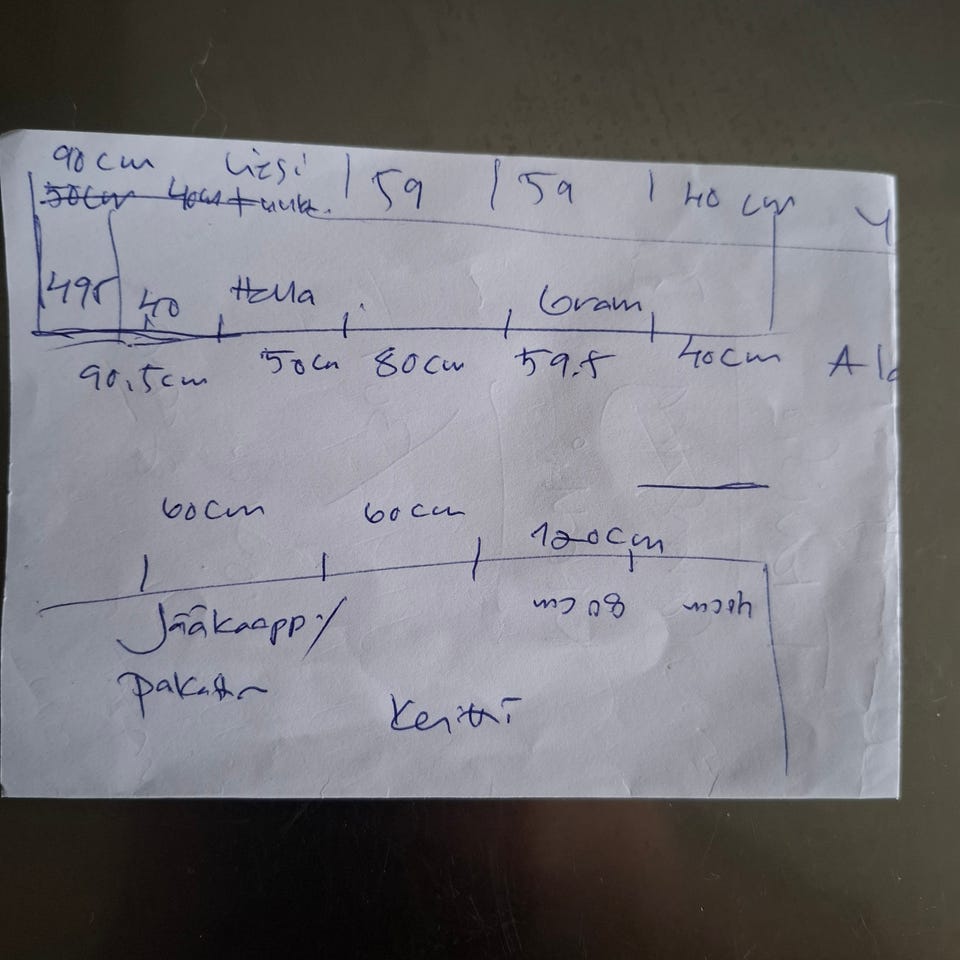 90 cm Liesi | 59 | 59 | 40 cm Y
50cm 40cm
495 40 Hella Gram
90,5cm 50cm 80cm 59.5 40cm Ala
60cm 60cm 120cm
Jääkaappi/ 80cm 40cm
pakastin
Keittiö